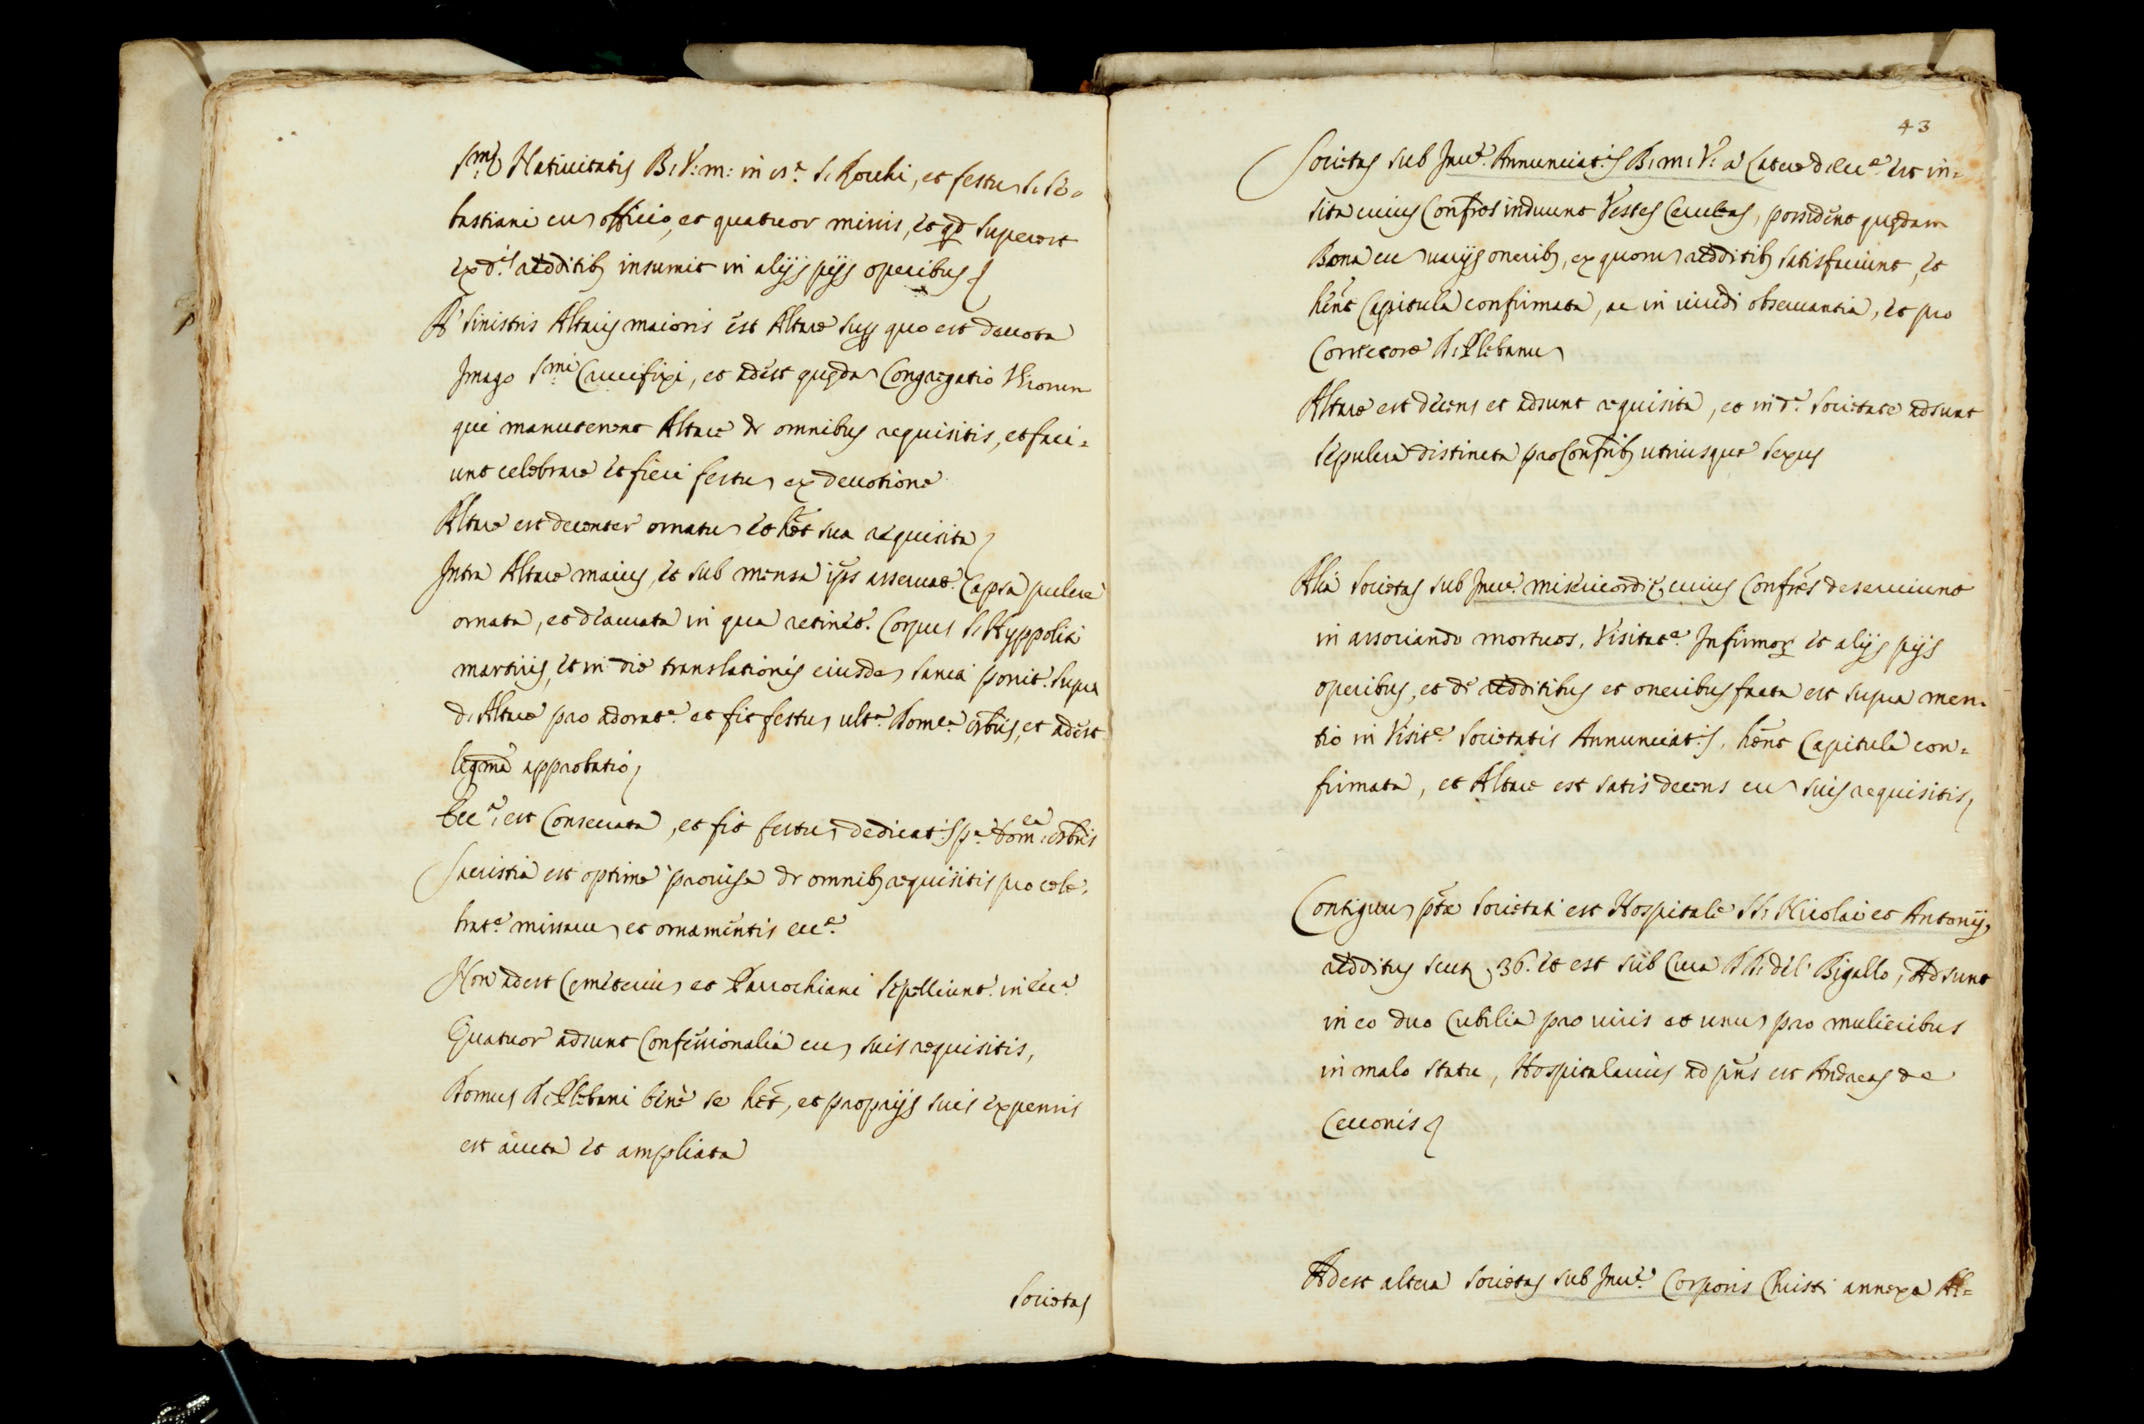 s.mæ Natiuitatis B: V: m: in es.ª S. Rochi, et festu S. Se=
bastiani cu officio, et quatuor missis, et qd superest
ex d.is redditib, insumit in alijs pijs operibus
A' sinistris Altaris maioris est Altare sup quo est deuota
Imago S.mi Crucifixi, et adest quæda Congregatio Viroru
qui manutenent Altare de omnibus requisitis, et faci=
unt celebrare et fieri festu ex deuotione
Altare est decenter ornatu et het sua requisita
Intra Altare maius, et sub mensa ips asseruat. Capsa pulcre
ornata, et deaurata in qua retinet. Corpus S. Hyppoliti
martiris, et in die translationis eiusde Sancti ponit. supra
d. Altare pro adorat.e et fit festu ult.ª Dom.ca 8bris, et adest
legma approbatio
Ecc.ª est Consecrata, et fit festu dedicat.is p.ª Dom.ca 8bris
Sacristia est optime prouisa de omnib requisitis pro cele=
brat.e missaru et ornamentis ecc.e
Non adest Cemiteriu et Parrochiani sepelliunt. in ecc.ª
Quatuor adsunt Confessionalia cu suis requisitis,
Domus R. Plebani bene se het, et proprijs suis expensis
est aucta et ampliata
Societas
43
Societas sub Inu.e Annunciat.is B: m: V: a' latere d. ecc.e est in=
sita cuius Confres induunt Vestes Ceruleas, possident quædam
Bona cu uarijs onerib, ex quoru redditib satisfaciunt, et
hent Capitula confirmata, ac in uiridi obseruantia, et pro
Correctore R. Plebanu
Altare est decens et adsunt requisita, et in d.ª Societate adsunt
sepulcra distincta pro Confrib utriusque sexus
Alia Societas sub Inu.e misericordiæ, cuius Confres deseruiunt
in associando mortuos, Visitat.e Infirmoꝝ et alijs pijs
operibus, et de redditibus et oneribus facta est supra men=
tio in Visit.e Societatis Annunciat.is, hent Capitula con=
firmata, et Altare est satis decens cu suis requisitis,
Contiguu ptæ Societati est Hospitale SS. Nicolai et Antonij,
redditus scut. 36. et est sub Cura RR. del Bigallo, Adsunt
in eo duo Cubilia pro uiris et unu pro mulieribus
in malo statu, Hospitalarius ad pns est Andreas de
Cecconis
Adest altera Societas sub Inu.e Corporis Christi annexa Al=